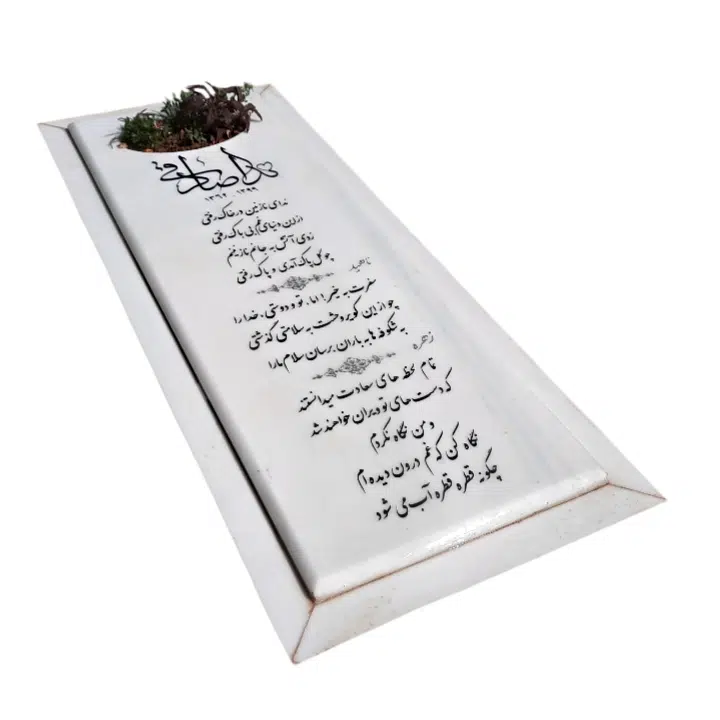 ندا صادقی
۱۳۶۲ - ۱۳۹۹
ندای نازنین در خاک رفتی
از این دنیای غم بی باک رفتی
زدی آتش به جانم نازنینم
چو گل پاک آمدی و پاک رفتی
ناهید
سفرت به خیر! اما، تو و دوستی، خدا را
چو از این کویر وحشت به سلامتی گذشتی
به شکوفه ها به باران برسان سلام ما را
زهره
تمام لحظه های سعادت میدانستند
که دست های تو ویران خواهند شد
و من نگاه نکردم
نگاه کن که غم درون دیده ام
چگونه قطره قطره آب می شود